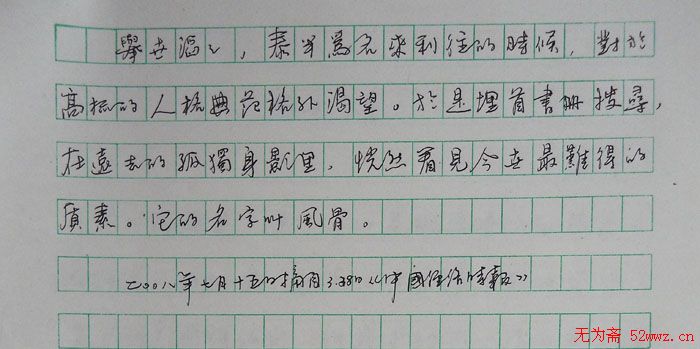 舉世滔々，泰半為名來利往的時候，對於
高標的人格典范格外渴望。於是埋首書冊搜尋，
在遠去的孤獨身影里，恍然看見今世最難得的
質素。它的名字叫風骨。
二〇〇八年七月十五日摘自3.28日《中國經濟時報》
无为斋 52wwz.cn